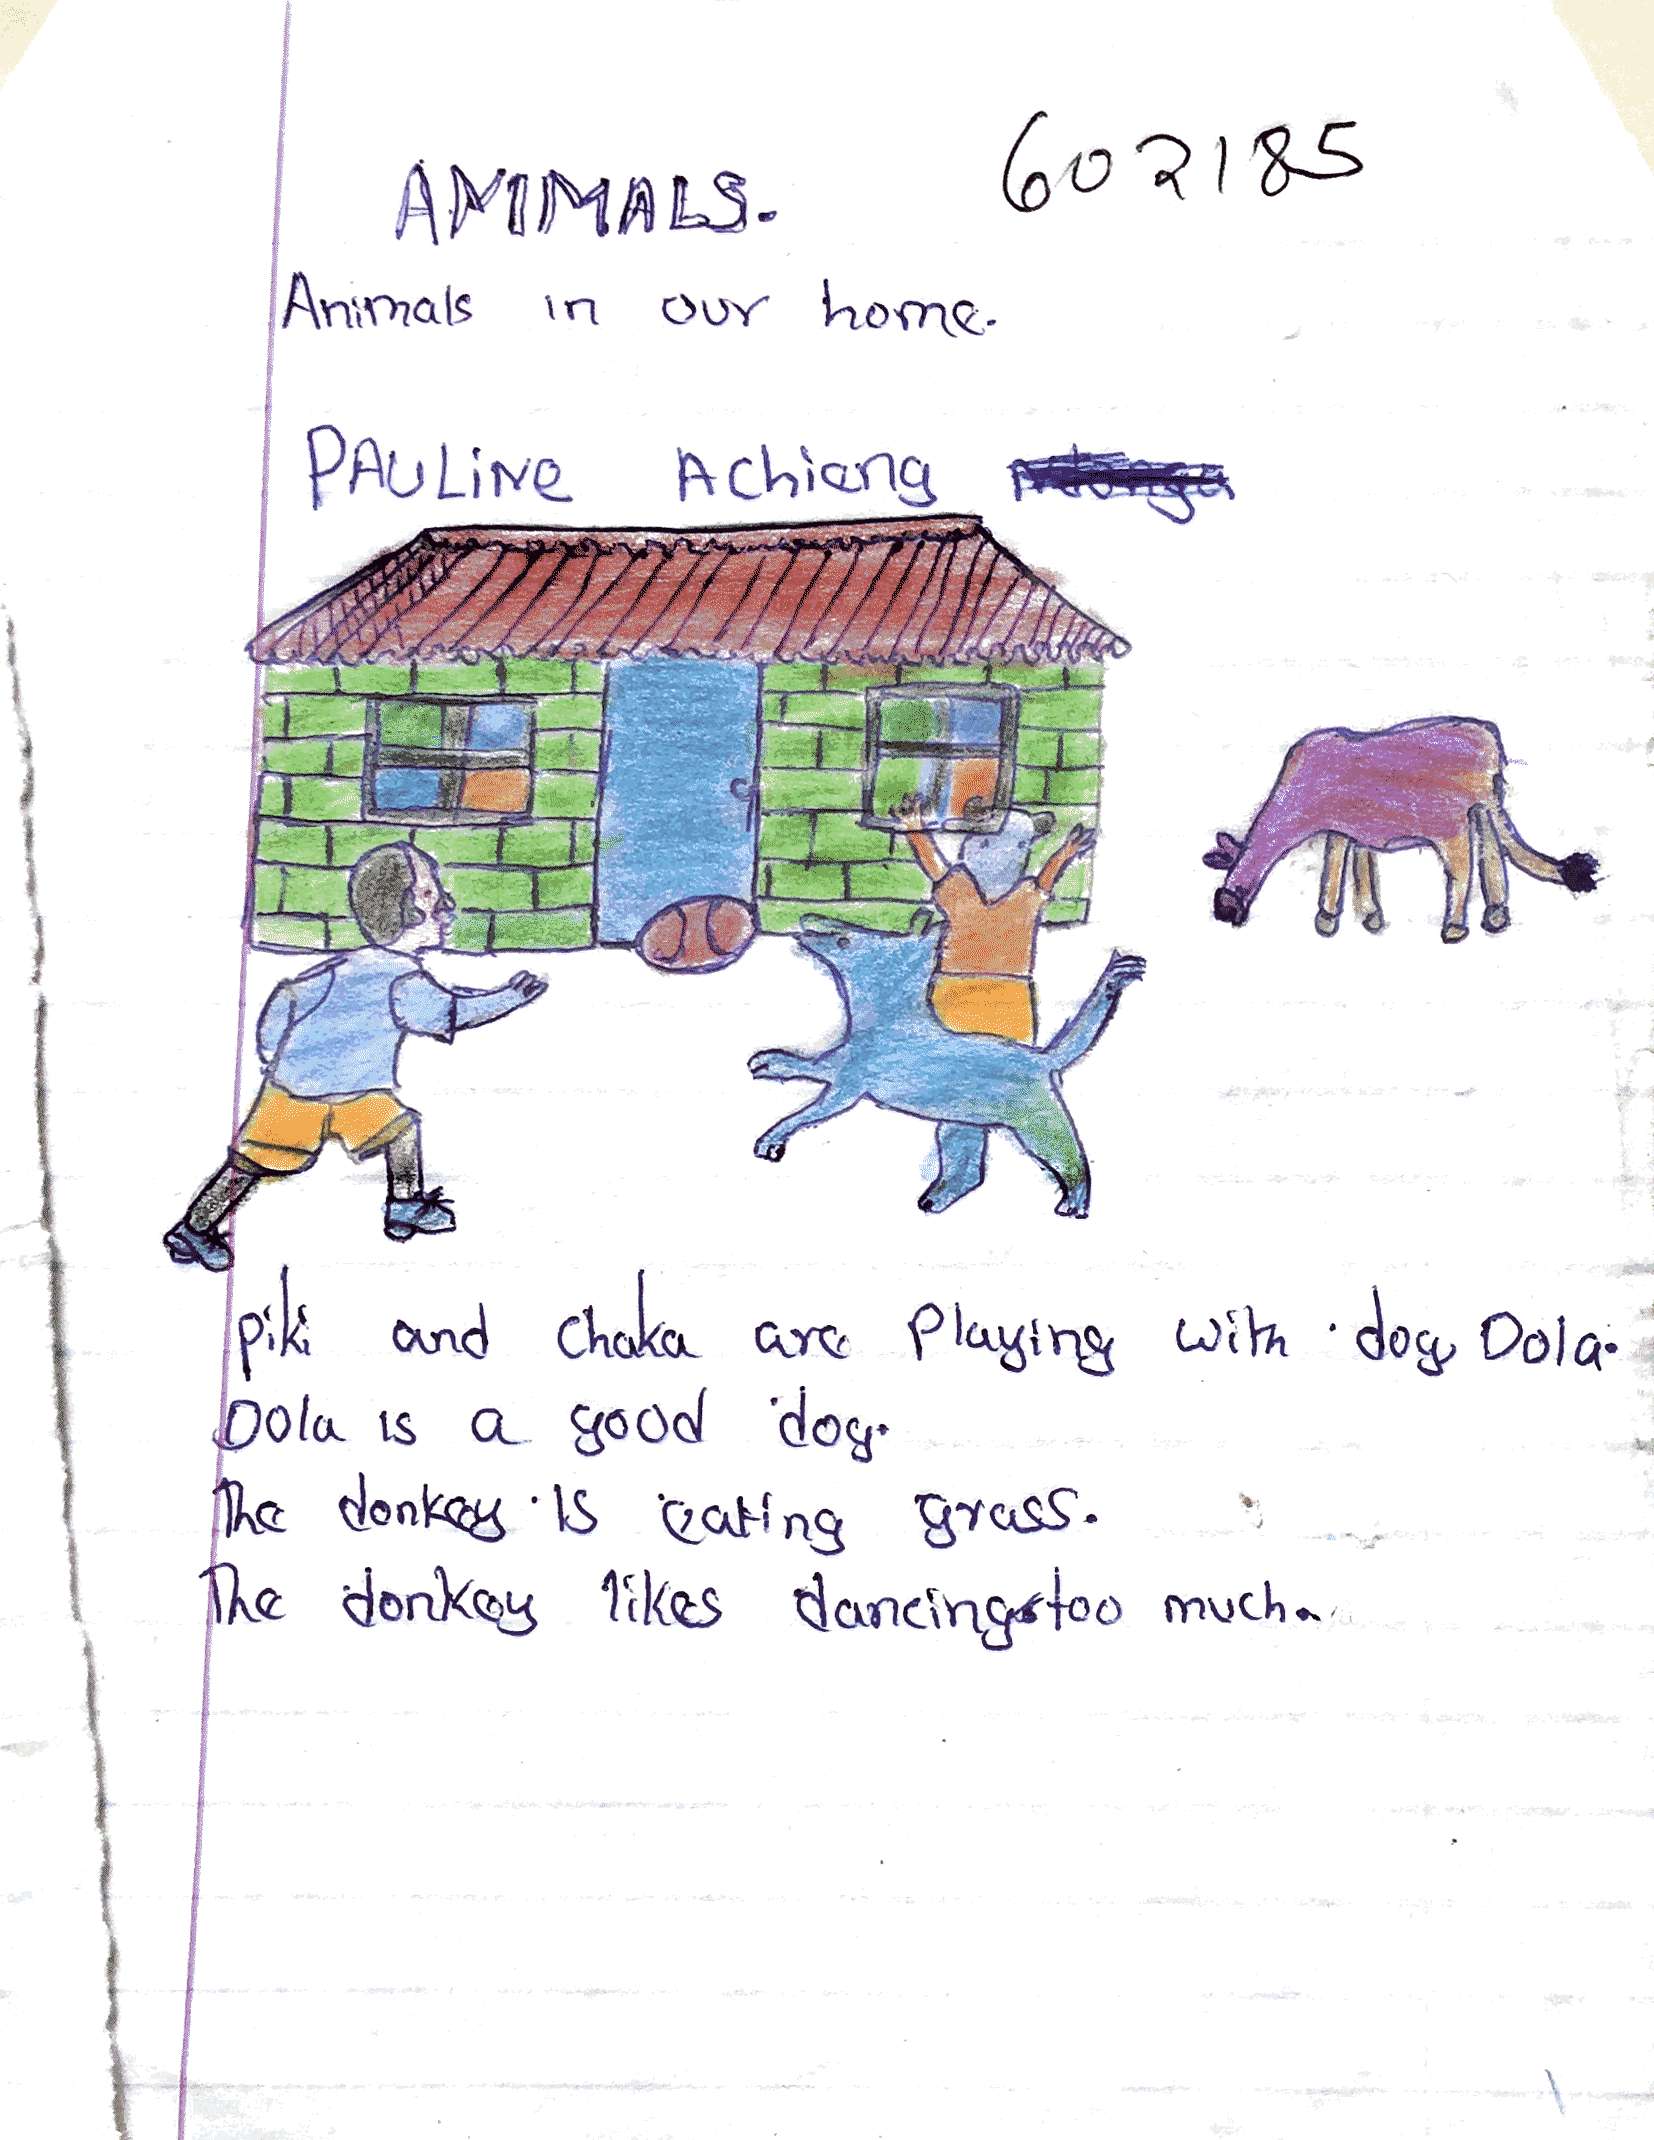 602185
ANIMALS.
Animals in our home.
PAULINE Achieng
Piki and chaka are Playing with dog Dola.
Dola is a good dog.
The donkey is eating grass.
The donkey likes dancing too much.